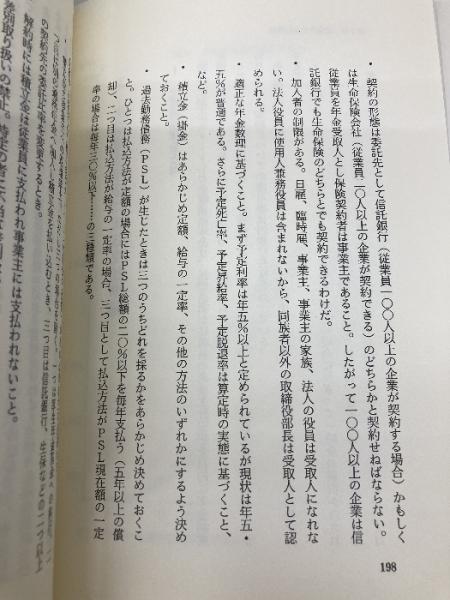 ・ 契約の形態は委託先として信託銀行（従業員一〇〇人以上の企業が契約する場合）かもしく
は生命保険会社（従業員二〇人以上の企業が契約できる）のどちらかと契約せねばならない。
従業員を年金受取人とし保険契約者は事業主であること。したがって一〇〇人以上の企業は信
託銀行でも生命保険のどちらとでも契約できるわけだ。
・ 加入者の制限がある。日雇、臨時雇、事業主、事業主の家族、法人の役員は受取人になれな
い。法人役員に使用人兼務役員は含まれないから、同族者以外の取締役部長は受取人として認
められる。
・ 適正な年金数理に基づくこと。まず予定利率は年五％以上と定められているが現状は年五・
五％が普通である。さらに予定死亡率、予定昇給率、予定脱退率は算定時の実態に基づくこと、
など。
・ 積立金（掛金）はあらかじめ定額、給与の一定率、その他の方法のいずれかにするよう決め
ておくこと。
・ 過去勤務債務（ＰＳＬ）が生じたときは三つのうちどれを採るかをあらかじめ決めておくこ
と。ひとつは払込方法が定額の場合にはＰＳＬ総額の二〇％以下を毎年支払う（五年以上の償
却）、二つ目は払込方法が給与の一定率の場合、三つ目として払込方法がＰＳＬ現在額の一定
率の場合は毎年三〇％以下……の三種類である。
の契約先の委託比率を変更するとき。
解約時には積立金は従業員に支払われ事業主には支払われないこと。
差別取り扱いの禁止。特定の者に不当な差別
198